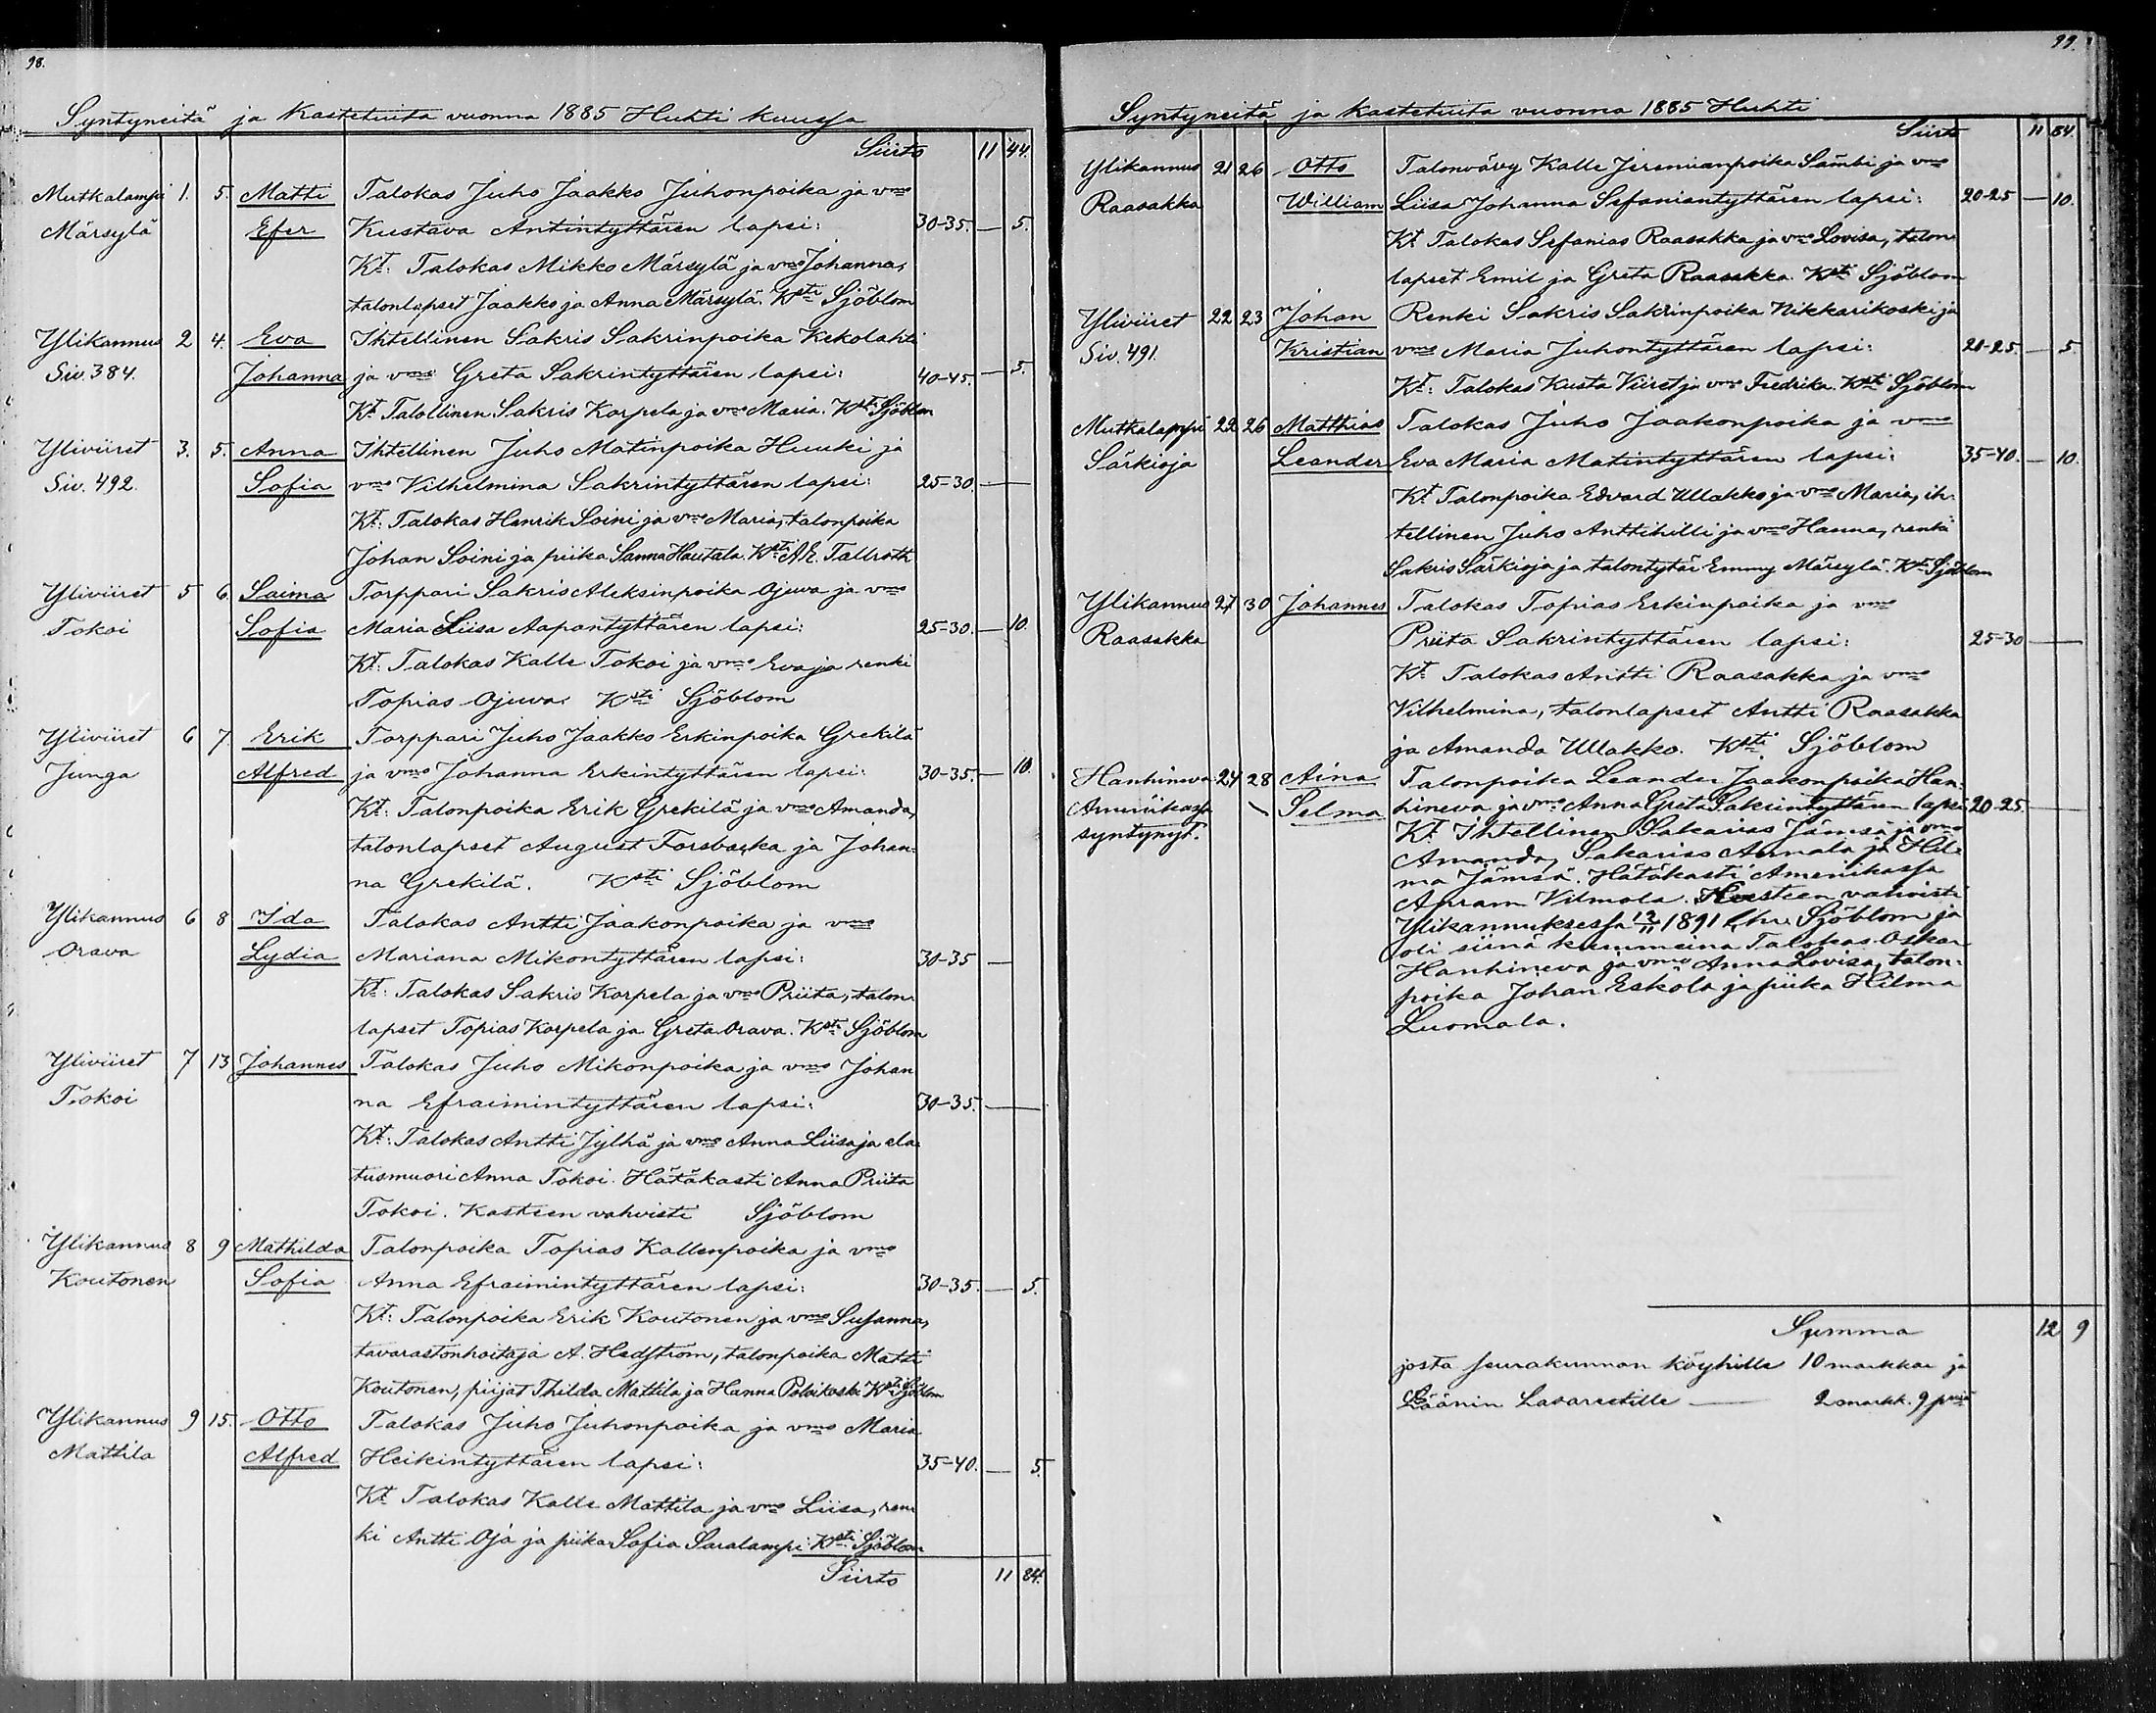 98.
Syntyneitä ja Kastetuita vuonna 1885 Huhti kuussa
Siirto 11 44.
Mutkalampi 1. 5. Matti Talokas Juho Jaakko Juhonpoika ja vmo
Märsylä Efer Kustava Antintyttären lapsi: 30-35. — 5.
Kt: Talokas Mikko Märsylä ja vmo Johanna,
talonlapset Jaakko ja Anna Märsylä. Ksti Sjöblom
Ylikannus 2 4. Eva Ihtellinen Sakris Sakrinpoika Kekolahti
Siv. 384. Johanna ja vmo Greta Sakrintyttären lapsi: 40-45. — 5.
Kt Talollinen Sakris Korpela ja vmo Maria. Ksti Sjöblom
Yliviiret 3. 5. Anna Ihtellinen Juho Matinpoika Huuki ja
Siv. 492. Sofia vmo Vilhelmina Sakrintyttären lapsi: 25-30. —
Kt: Talokas Henrik Soini ja vmo Maria, talonpoika
Johan Soini ja piika Sanna Hautala. Ksti A.E. Tallroth
Yliviiret 5 6. Saima Torppari Sakris Aleksinpoika Ojuva ja vmo
Tokoi Sofia Maria Liisa Aapontyttären lapsi: 25-30. — 10.
Kt: Talokas Kalle Tokoi ja vmo Eva ja renki
Topias Ojuva. Ksti Sjöblom
Yliviiret 6 7. Erik Torppari Juho Jaakko Erkinpoika Grekilä
Junga Alfred ja vmo Johanna Erkintyttären lapsi: 30-35. — 10.
Kt: Talonpoika Erik Grekilä ja vmo Amanda,
talonlapset August Forsbacka ja Johan-
na Grekilä. Ksti Sjöblom
Ylikannus 6 8 Ida Talokas Antti Jaakonpoika ja vmo
Orava Lydia Mariana Mikontyttären lapsi: 30-35 —
Kt: Talokas Sakris Korpela ja vmo Priita, talon-
lapset Topias Korpela ja Greta Orava. Ksti Sjöblom
Yliviiret 7 13 Johannes Talokas Juho Mikonpoika ja vmo Johan
Tokoi na Efraimintyttären lapsi: 30-35. —
Kt: Talokas Antti Jylhä ja vmo Anna Liisa ja ela-
tusmuori Anna Tokoi. Hätäkasti Anna Priita
Tokoi. Kasteen vahvisti Sjöblom
Ylikannus 8 9 Mathilda Talonpoika Topias Kallenpoika ja vmo
Koutonen Sofia Anna Efraimintyttären lapsi: 30-35. — 5.
Kt: Talonpoika Erik Koutonen ja vmo Susanna,
tavarastonhoitaja A. Hedström, talonpoika Matti
Koutonen, piijat Thilda Mattila ja Hanna Polvikoski Ksti Sjöblom
Ylikannus 9 15. Otto Talokas Juho Juhonpoika ja vmo Maria
Mattila Alfred Heikintyttären lapsi: 35-40. — 5.
Kt Talokas Kalle Mattila ja vmo Liisa, ren-
ki Antti Oja ja piika Sofia Saralampi. Ksti Sjöblom
Siirto 11 84.
99.
Syntyneitä ja kastetuita vuonna 1885 Huhti
Siirto 11 84.
Ylikannus 21 26 Otto Talonvävy Kalle Jeremianpoika Sämbi ja vmo
Raasakka William Liisa Johanna Sefaniantyttären lapsi: 20-25 — 10.
Kt Talokas Sefanias Raasakka ja vmo Lovisa, talon-
lapset Emil ja Greta Raasakka. Ksti Sjöblom
Yliviiret 22 23 Johan Renki Sakris Sakrinpoika Nikkarikoski ja
Siv. 491. Kristian vmo Maria Juhontyttären lapsi: 20-25. — 5.
Kt: Talokas Kusta Viiret ja vmo Fredrika. Ksti Sjöblom
Mutkalampi 22 26 Matthias Talokas Juho Jaakonpoika ja vmo
Särkioja Leander Eva Maria Matintyttären lapsi: 35-40. — 10.
Kt Talonpoika Edvard Ullakko ja vmo Maria, ih-
tellinen Juho Anttihilli ja vmo Hanna, renki
Sakris Särkioja ja talontytär Emmy Märsylä. Ksti Sjöblom
Ylikannus 27 30 Johannes Talokas Topias Erkinpoika ja vmo
Raasakka Priita Sakrintyttären lapsi: 25-30 —
Kt Talokas Antti Raasakka ja vmo
Vilhelmina, talonlapset Antti Raasakka
ja Amanda Ullakko. Ksti Sjöblom
Hanhineva 24 28 Aina Talonpoika Leander Jaakonpoika Han-
Amerikassa Selma hineva ja vmo Anna Greta Sakrintyttären lapsi 20-25. —
syntynyt. Kt Ihtellinen Sakarias Jämsä ja vmo
Amanda, Sakarias Annala ja Hil-
ma Jämsä. Hätäkasti Amerikassa
Apram Vilmola. Kasteen vahvisti
Ylikannuksessa 12/11 1891 Sjöblom ja
oli siinä kummeina Talokas Oskar
Hanhineva ja vmo Anna Lovisa, talon-
poika Johan Eskola ja piika Hilma
Luomala.
Summa 12 9
josta seurakunnan köyhille 10 markkaa ja
Läänin Lasarettille — 2 markk. 9 pniä